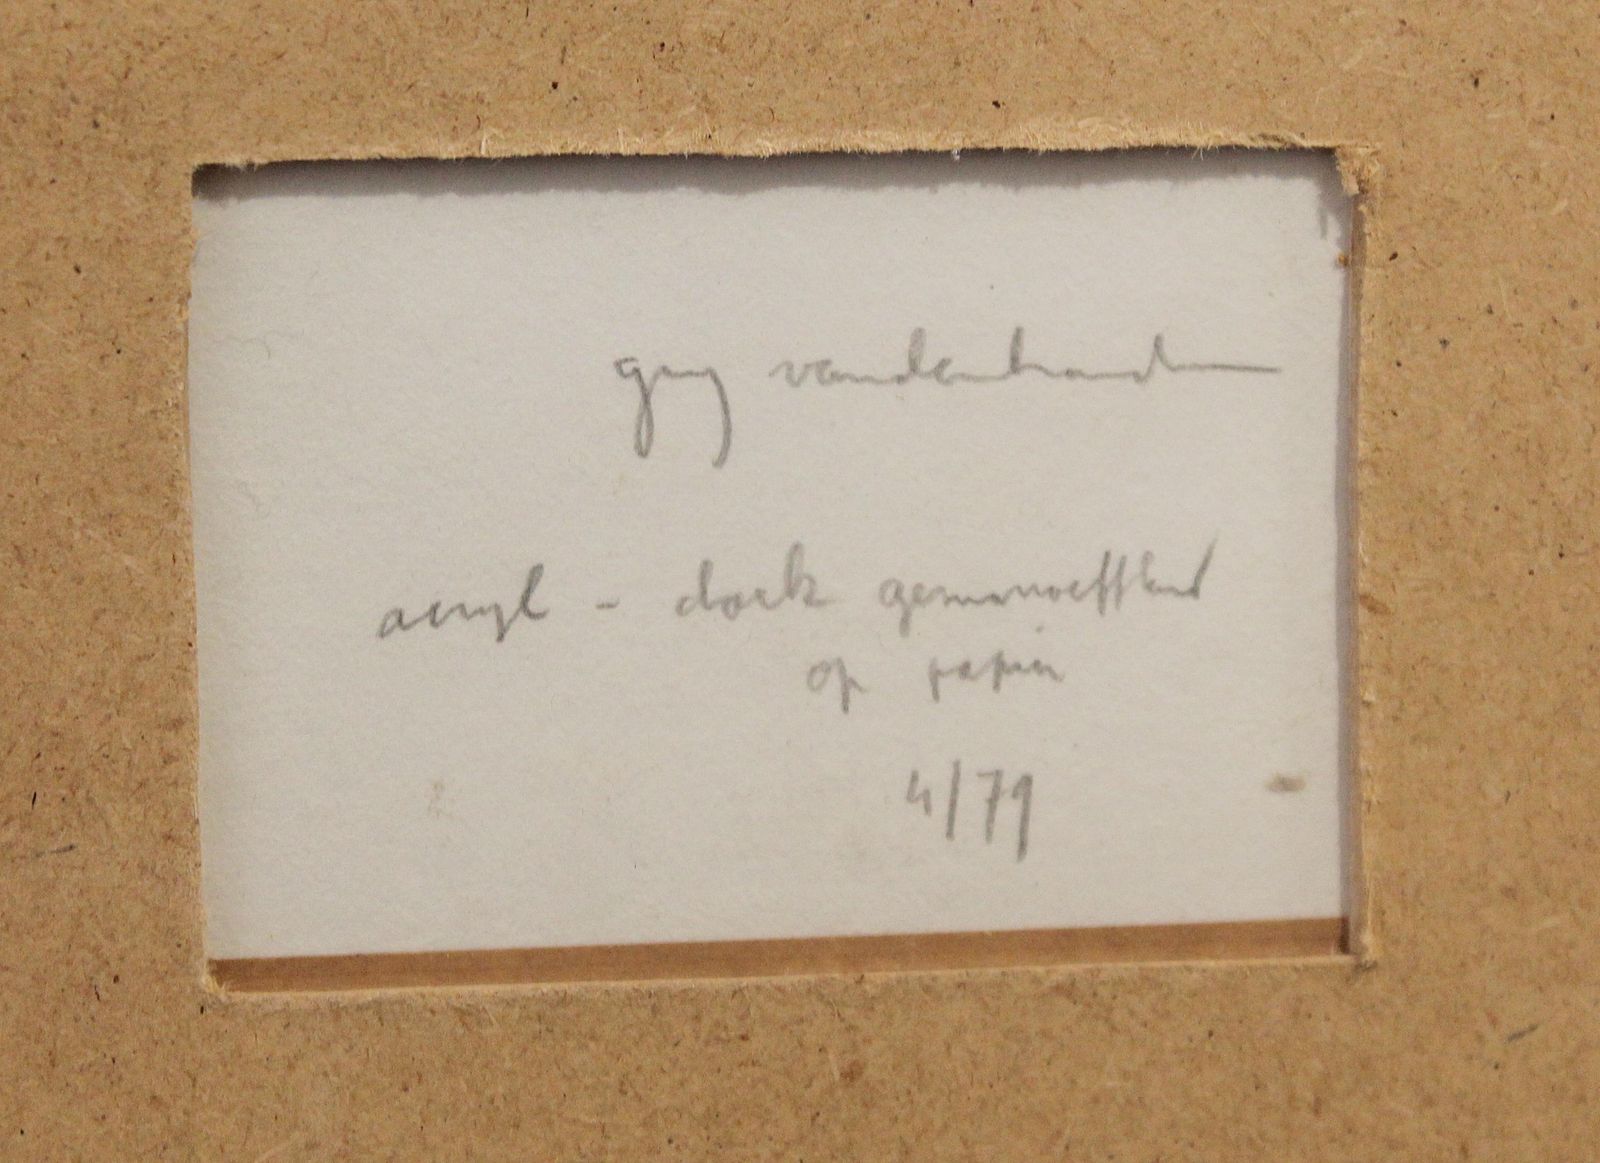 guy vandenbranden
acryl - doek gemaroeffleerd
op papier
4/79